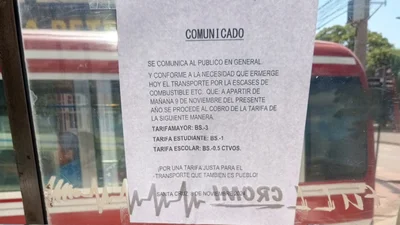 COMUNICADO
SE COMUNICA AL PUBLICO EN GENERAL.
Y CONFORME A LA NECESIDAD QUE ERMERGE
HOY EL TRANSPORTE POR LA ESCASES DE
COMBUSTIBLE ETC. QUE: A APARTIR DE
MAÑANA 9 DE NOVIEMBRE DEL PRESENTE
AÑO SE PROCEDE AL COBRO DE LA TARIFA DE
LA SIGUIENTE MANERA.
TARIFAMAYOR: BS.-3
TARIFA ESTUDIANTE: BS.-1
TARIFA ESCOLAR: BS.-0.5 CTVOS.
¡POR UNA TARIFA JUSTA PARA EL
TRANSPORTE QUE TAMBIEN ES PUEBLO!
SANTA CRUZ, NOVIEMBRE
CROMI